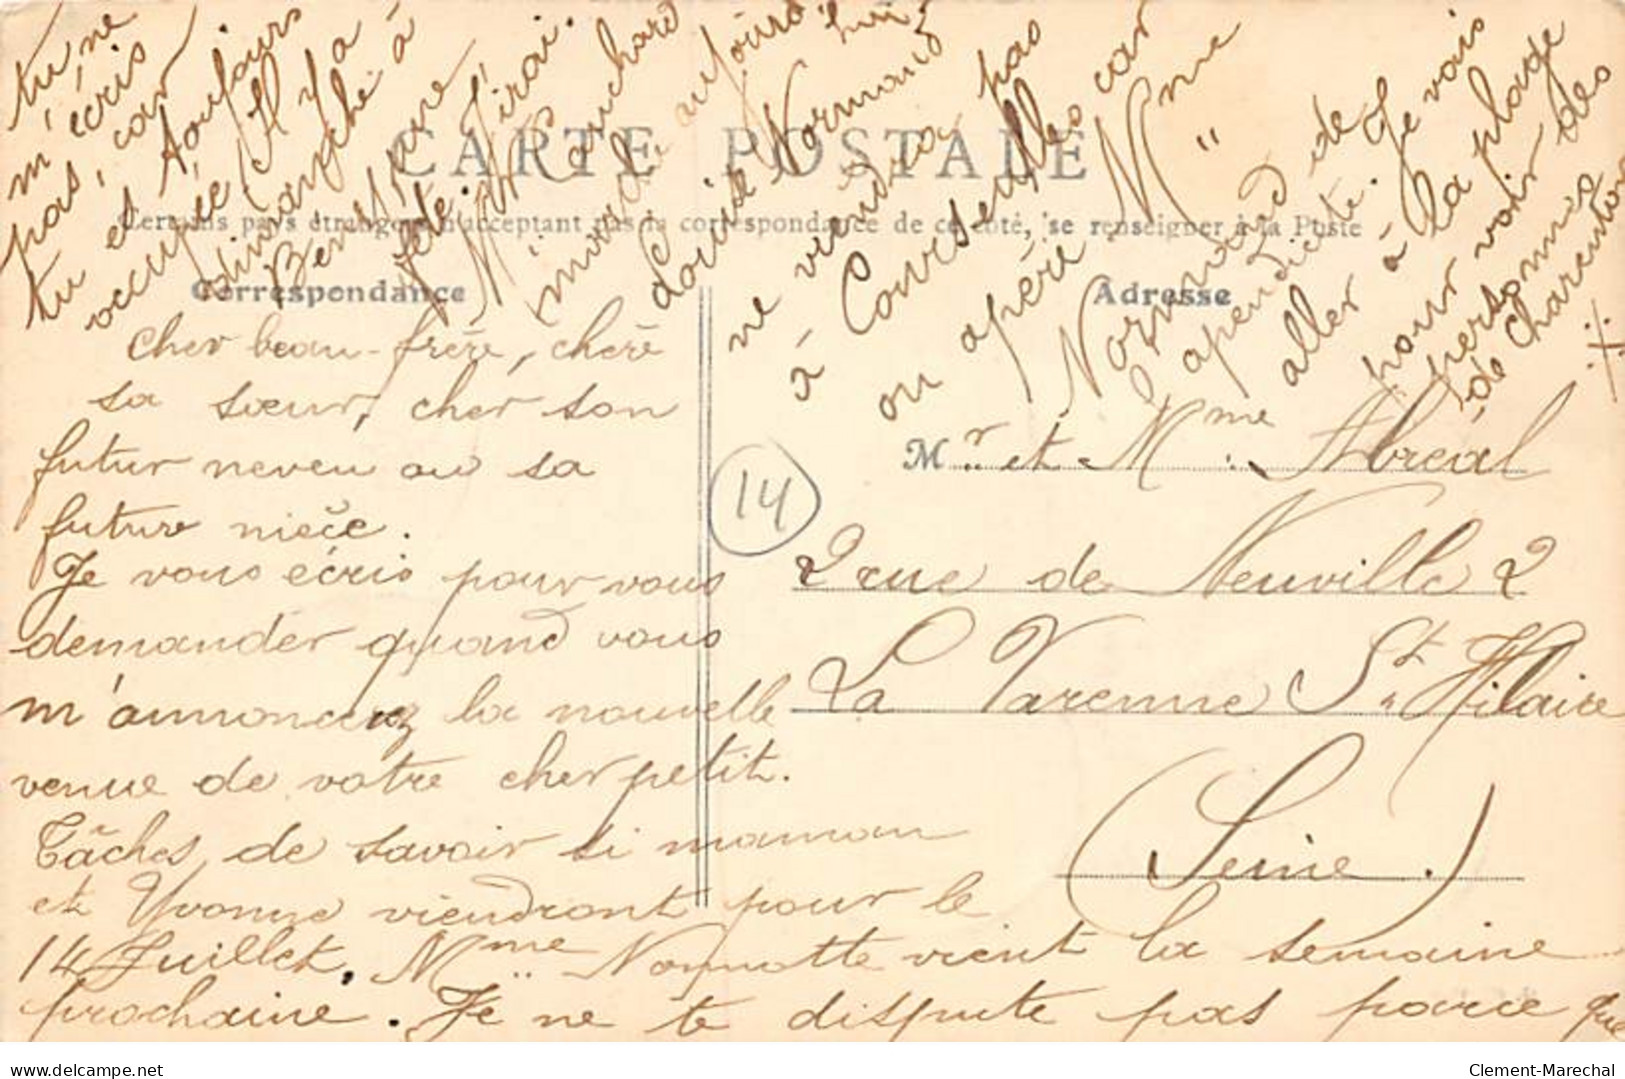 CARTE POSTALE
Certains pays étrangers n'acceptant pas la correspondance de ce côté, se renseigner à la Poste
Correspondance
Adresse
Cher beau-frère, chère
sa sœur, cher son
futur neveu ou sa
future nièce.
Je vous écris pour vous
demander quand vous
m'annoncerez la nouvelle
venue de votre cher petit.
Tâches de savoir si maman
et Yvonne viendront pour le
14 Juillet. Mme Normotte vient la semaine
prochaine. Je ne te dispute pas parce que
tu ne
m'écris
pas, car
tu es toujours
occupée. Il y a
dimanche à
Bernières
fête. J'irai.
Mrs
"
mardi aujourd'hui
Louise Normand
ne viendra pas
à Courseulles car
on opère Mme
Normand de "
l'apendicite. Je vais
aller à la plage
pour voir des
personnes
de Charenton
Mr et Mme Abréal
2 rue de Neuville 2
La Varenne St Hilaire
(Seine.)
14
delcampe.net
Clement-Marechal